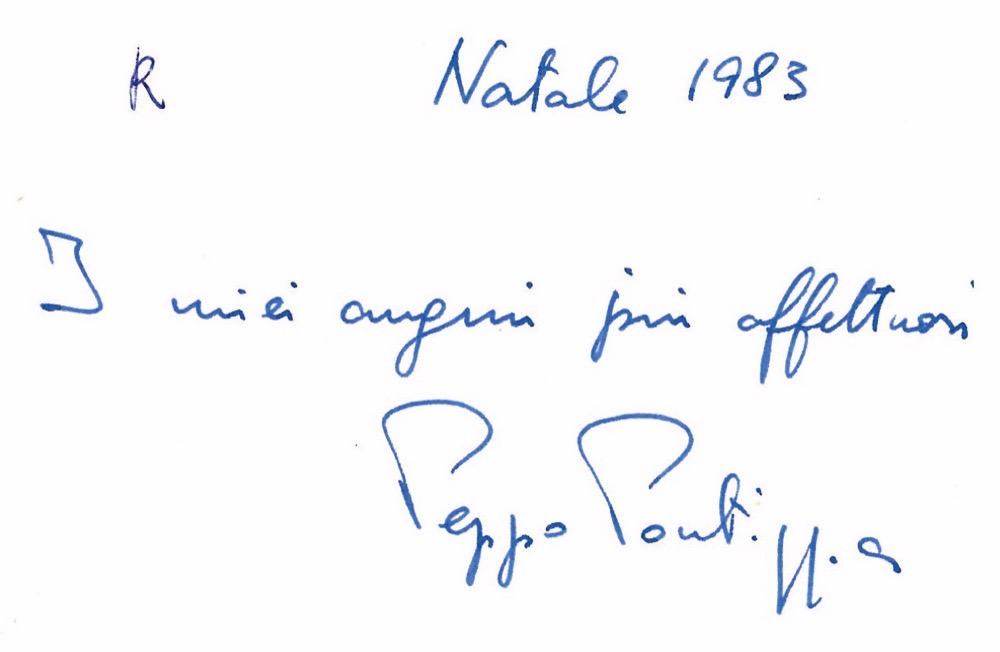 R Natale 1983
I miei auguri più affettuosi
Peppo Pontiggia